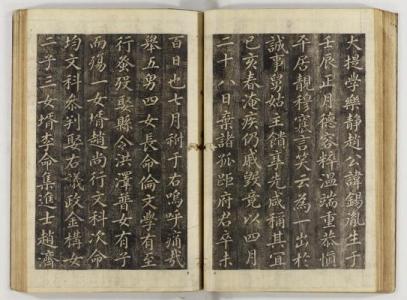 大提學樂靜趙公諱錫胤生于
壬辰正月德容粹溫端重恭愼
平居靚穆寡言笑云爲一出於
誠事舅姑主饋事先咸稱其宜
己亥春淹疾仍戚毀竟以四月
二十八日棄諸孤距府君卒未
百日也七月祔于右嗚呼痛哉
擧五男四女長命倫文學有至
行蚤歿娶縣令洪澤普女有子
而殤一女壻趙尚行文科次命
均文科參判娶右議政金構女
二子三女壻李命集進士趙濟